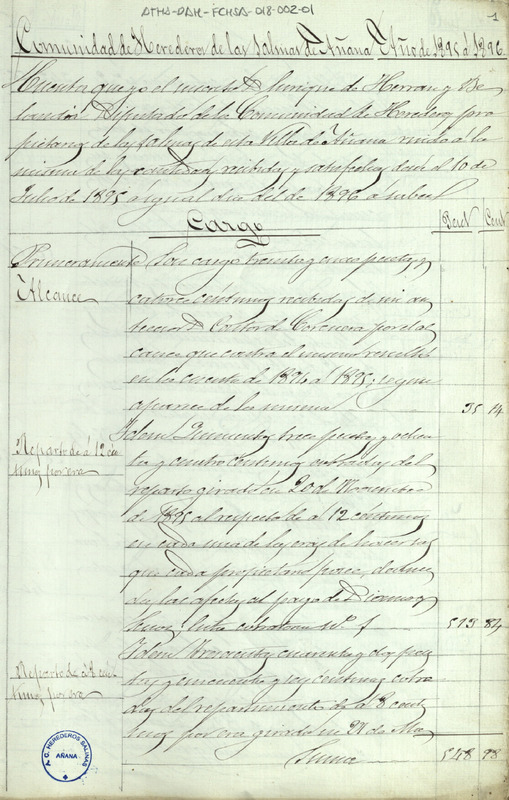 ATHA-DAH-FCHSA-018-002-01
1
Comunidad de Herederos de las Salinas de Añana Año de 1895 á 1896
Cuenta que yo el Enrique de Herran y
Diputado de la Comunidad de Herederos pro
pietarios de las Salinas de esta Villa de Añana rindo á la
misma de las cantidades recibidas y satisfechas desde el 10 de
Julio de 1895 á igual dia del de 1896 á saber
Cargo
Peset Cent
Primeramente Son cargo treinta y cinco pesetas y
Alcance
catorce céntimos recibidas de mi an
tecesor D. por el al
cance que contra el mismo resultó
en la cuenta de 1894 á 1895, segun
aparece de la misma 35 14
Reparto de á 12 cen
timos por era
Idem Quinientas trece pesetas y ochen
ta y cuatro centimos cobradas del
reparto girado en 20 de Noviembre
de 1895 al respecto de á 12 centimos
en cada una de las eras de hacer sal
que cada propietario posee,
das las al pago de
513 84
Reparto de á 8 cen
timos por era
Idem Trescientas cuarenta y dos pese
tas y cincuenta y seis centimos cobra
das del repartimiento de á 8 cent
imos por era girado en 24 de Ma
Suma 548 98
A.C. HEREDEROS SALINAS
AÑANA